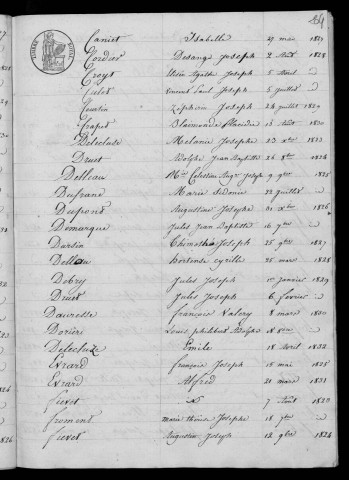 44
Caniet Isabelle 27 mai 1829
Cordier Desange Joseph 2 Août 1828
Croyt Joseph 5 Avril d
Culot Vincent Paul Joseph 6 Juillet d
Courtin Zéphirin Joseph 24 juillet 1829
Crapet Blaimonde Placidie 15 Août 1830
Delecluse Mélanie Josephe 23 1823
Druet Adolphe Jean Baptiste 26 8bre 1824
Delleau Celestine Joseph 9 9bre 1825
Dufrane Marie Sidonie 22 juillet
Dupont Augustine Josephe 31 1826
Demarque Jules Jean Baptiste 14 7bre d
Dursin Thimothé Joseph 25 9bre 1827
Delleau hortense cyrille 25 mai 1828
Debry Jules Joseph 1er janvier 1829
Druet Jules Joseph 6 fevrier d
Dauresse françois Valery 8 mars 1830
Dorière Louis philibert Adolphe
Delecluze Emile 18 Avril 1832
Evrard françois Joseph 15 mai 1825
Evrard Alfred 21 mars 1831
fievet 7 Août 1823
froment marie thérèse Josephe 18 7bre d
fievet Augustin Joseph 12 9bre 1824